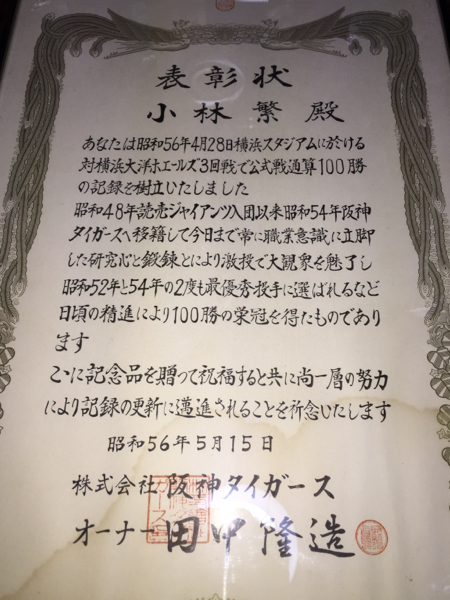 表彰状
小林 繁 殿
あなたは昭和56年4月28日横浜スタジアムに於ける
対横浜大洋ホエールズ3回戦で公式戦通算100勝
の記録を樹立いたしました
昭和48年読売ジャイアンツ入団以来昭和54年阪神
タイガースへ移籍して今日まで常に職業意識に立脚
した研究心と鍛錬とにより激投で大観衆を魅了し
昭和52年と54年の2度も最優秀投手に選ばれるなど
日頃の精進により100勝の栄冠を得たものであり
ます
こゝに記念品を贈って祝福すると共に尚一層の努力
により記録の更新に邁進されることを祈念いたします
昭和56年5月15日
株式会社 阪神タイガース
オーナー 田中隆造